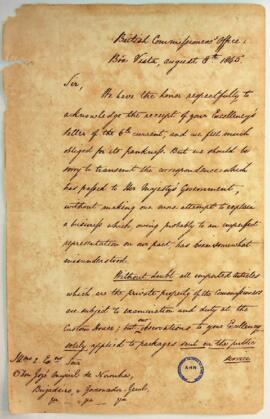 British Commissioners' Office,
Bôa Vista, August 8th 1845.
Sir,
We have the honor respectfully to
acknowledge the receipt of your Excellency's
letter of the 6th current, and we feel much
obliged for its frankness. But we should be
sorry to transmit the correspondence which
has passed to Her Majesty's Government,
without making one more attempt to explain
a business which, owing probably to an imperfect
representation on our part, has been somewhat
misunderstood.
Without doubt all imported articles
which are the private property of the Commissioners
are subject to examination and duty at the
Custom House; but our observations to your Excellency
solely applied to packages sent on the public
service
Illmo. e Exmo. Snr
Dom José Miguel de Noronha,
Brigadeiro, e Governador Geral,
AHN